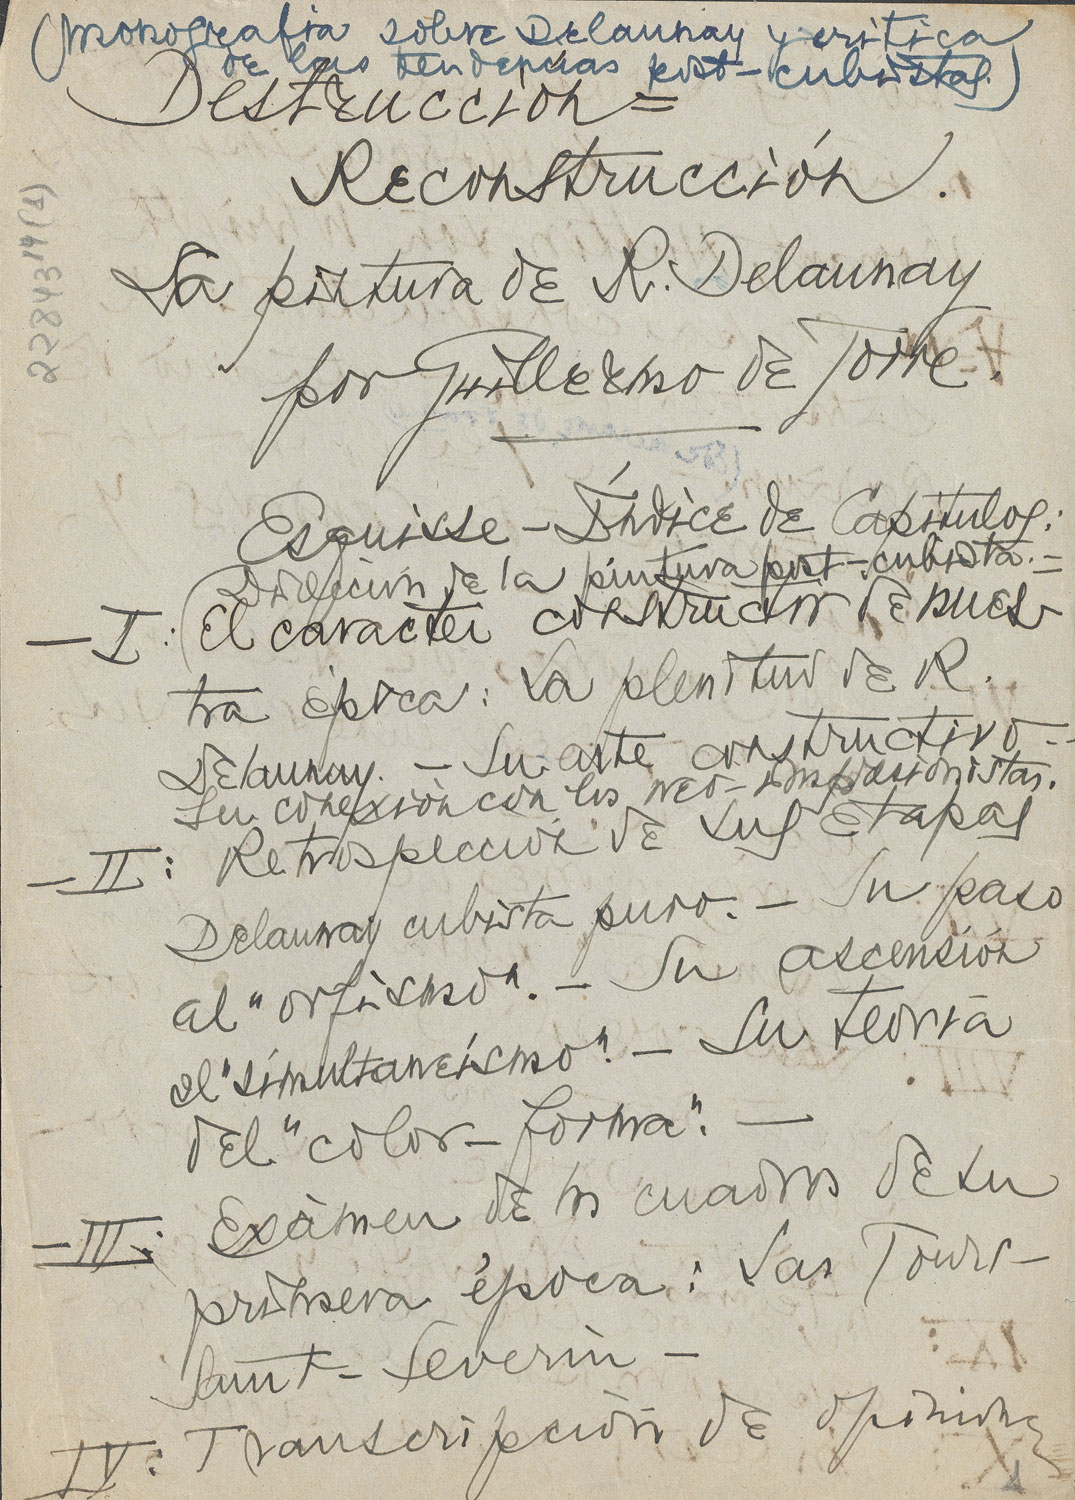 (Monografia sobre Delaunay y critica
de las tendencias post-cubistas.)
Destrucción =
Reconstrucción.
La pintura de R. Delaunay
por Guillermo de Torre.
Esquisse – Índice de Capitulos:
de la pintura post-cubista. =
– I: El caracter constructor de nues-
tra época: La plenitud de R.
Delaunay. – Su arte constructivo –
Su conexión con los neo-impresionistas.
– II: Retrospección de sus etapas
Delaunay cubista puro. – Su paso
al "orfismo". – Su ascensión
al "simultaneismo". – Su teoria
del "color-forma". –
– III: Exàmen de los cuadros de su
primera época: Las Tours –
Saint-Severin –
IV: Transcripción de opiniones
2284314(1)
VIII
IX